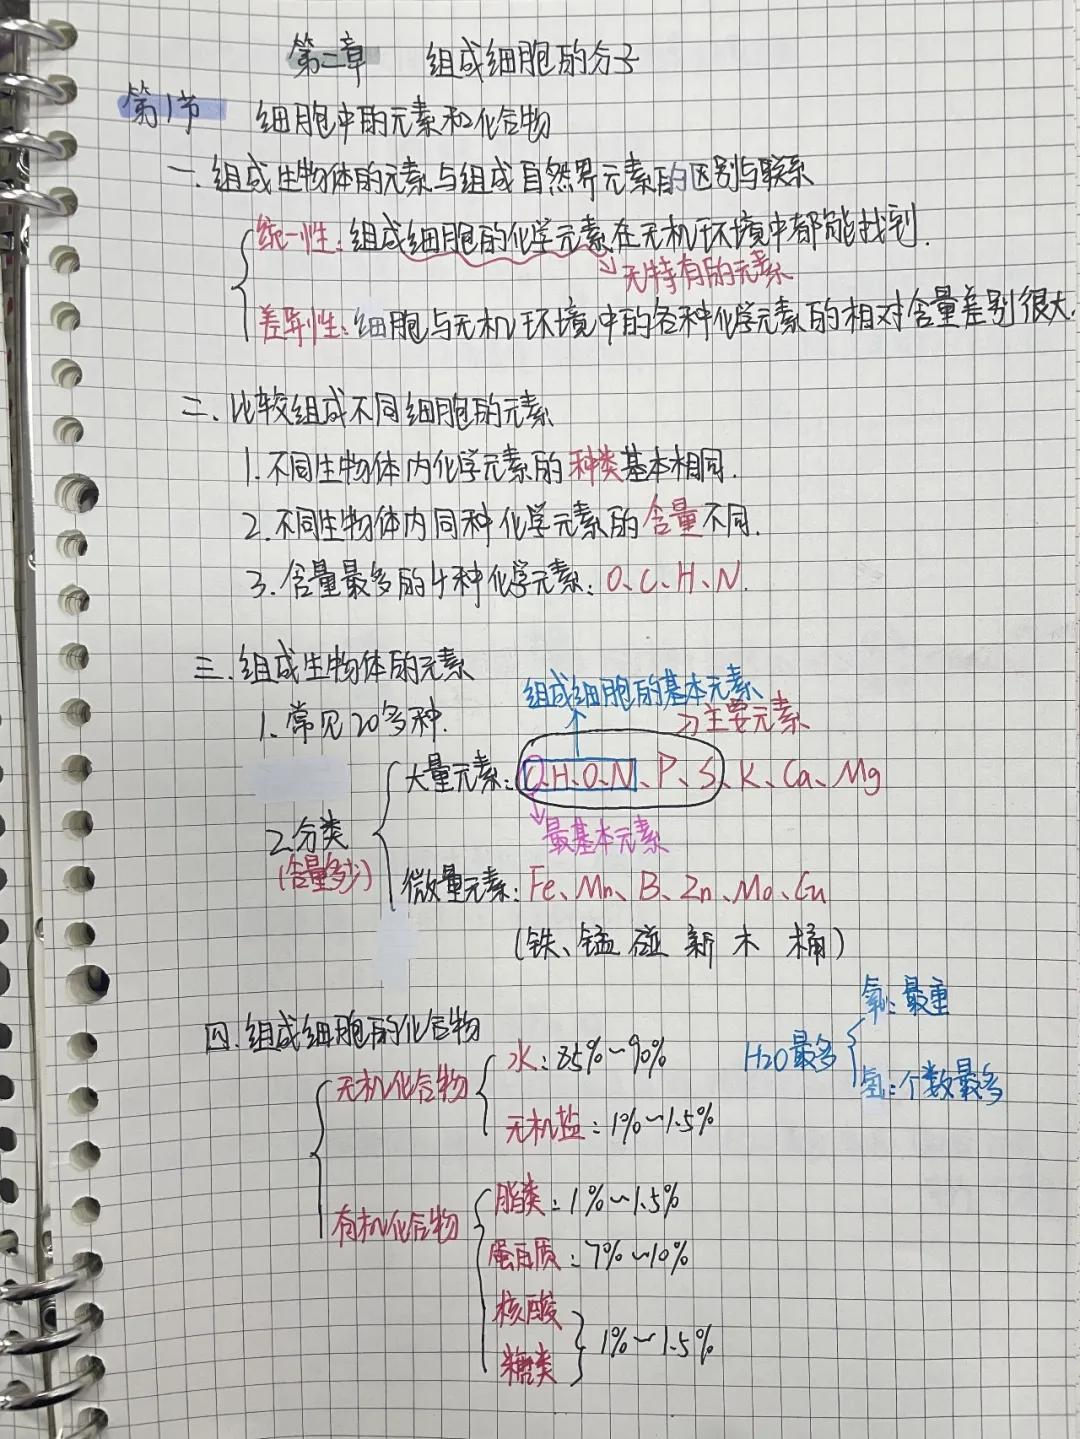 第二章 组成细胞的分子
第1节 细胞中的元素和化合物
一.组成生物体的元素与组成自然界元素的区别与联系
统一性:组成细胞的化学元素在无机环境中都能找到.
无特有的元素
差异性:细胞与无机环境中的各种化学元素的相对含量差别很大.
二.比较组成不同细胞的元素
1.不同生物体内化学元素的种类基本相同.
2.不同生物体内同种化学元素的含量不同.
3.含量最多的4种化学元素:O、C、H、N.
三.组成生物体的元素
组成细胞的基本元素
1.常见20多种.
主要元素
大量元素:C、H、O、N、P、S、K、Ca、Mg
2.分类
最基本元素
(含量多少)
微量元素:Fe、Mn、B、Zn、Mo、Cu
(铁、锰碰新木桶)
氧:最重
四.组成细胞的化合物
H2O最多
水:85%~90%
无机化合物
氢:个数最多
无机盐:1%~1.5%
脂类:1%~1.5%
有机化合物
蛋白质:7%~10%
核酸
1%~1.5%
糖类